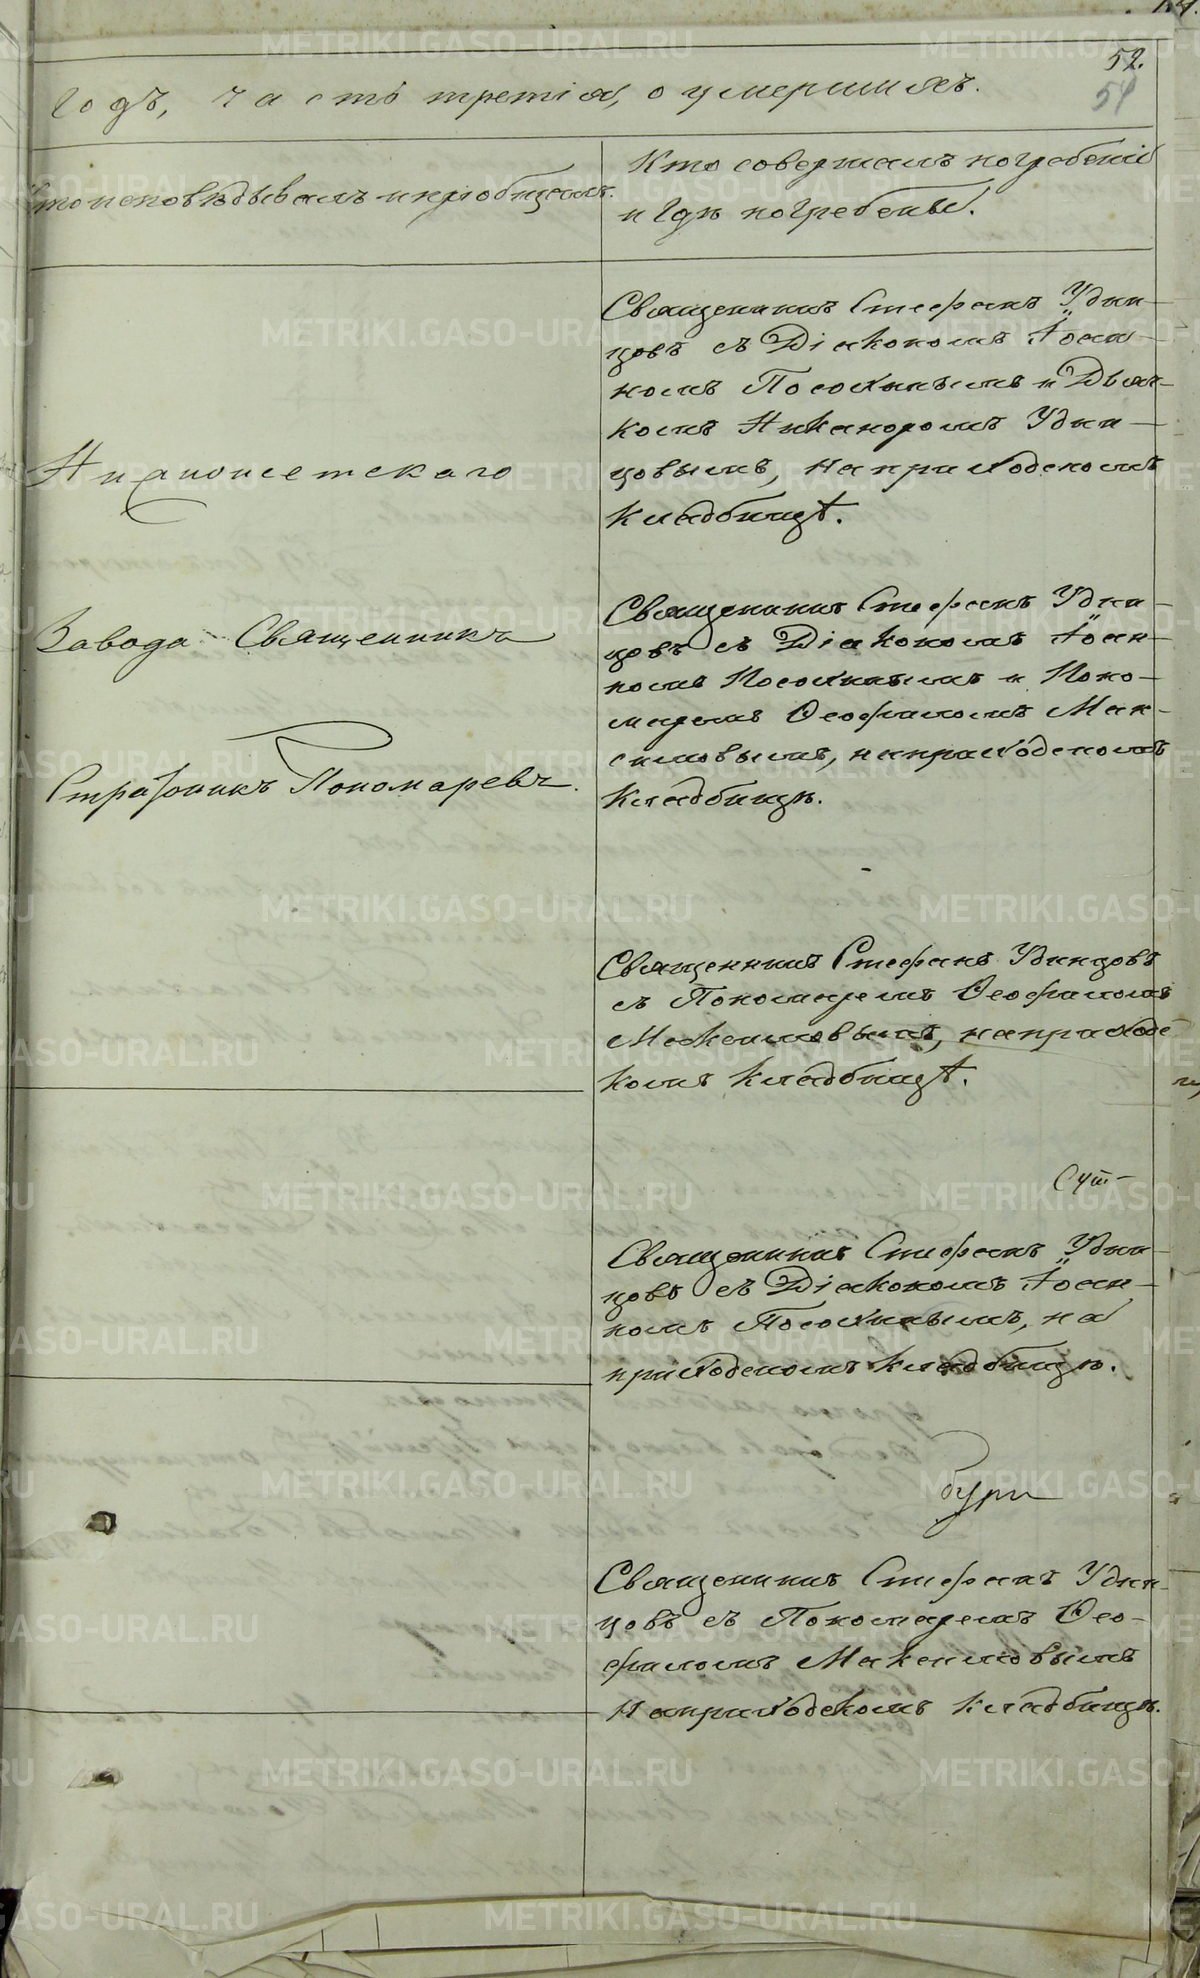 52.
54
Годъ, часть третія, о умершихъ.
Кто исповѣдывалъ и пріобщалъ.
Кто совершалъ погребеніе
и гдѣ погребены.
Священникъ Стефанъ Удин-
цовъ съ Діакономъ Іоан-
номъ Посохинымъ и Дьяч-
комъ Никаноромъ Удин-
цовымъ, на приходскомъ
кладбищѣ.
Завода Священникъ
Стратоникъ Пономаревъ.
Священникъ Стефанъ Удин-
цовъ съ Діакономъ Іоан-
номъ Посохинымъ и Поно-
маремъ Ѳеофиломъ Мак-
симовымъ, на приходскомъ
кладбищѣ.
Священникъ Стефанъ Удинцовъ
съ Пономаремъ Ѳеофиломъ
Максимовымъ, на приходс-
комъ кладбищѣ.
Священникъ Стефанъ Удин-
цовъ съ Діакономъ Іоан-
номъ Посохинымъ, на
приходскомъ кладбищѣ.
Священникъ Стефанъ Удин-
цовъ съ Пономаремъ Ѳео-
филомъ Максимовымъ
На приходскомъ кладбищѣ.
METRIKI.GASO-URAL.RU